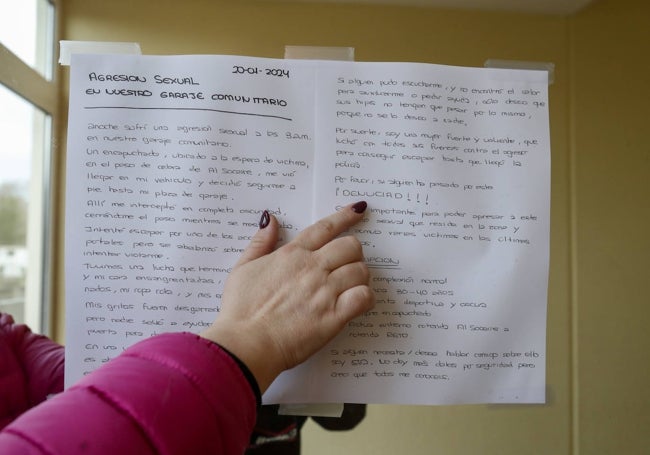 AGRESION SEXUAL
EN NUESTRO GARAJE COMUNITARIO
20-01-2024
anoche sufrí una agresión sexual a las
en nuestro garaje comunitario.
Un encapuchado, ubicado a la espera de víctima,
en el paso de cebra de Al Socaire, me vió
llegar en mi vehículo y decidió seguirme a
pie hasta mi plaza de garaje.
Allí me interceptó en completa oscuridad,
cerrándome el paso mientras se
Intenté escapar por uno de los
portales pero se abalanzó sobre
intentar violarme.
Tuvimos una lucha que terminó
y mi cara ensangrentadas,
mi ropa rota, y mis
Mis gritos fueron
pero nadie salió a ayudar
puerta para
En una
es
Si alguien pudo escucharme, y no
para auxiliarme o pedir ayuda, sólo deseo que
sus hijas no tengan que pasar por lo mismo,
porque no se lo deseo a nadie.
Por suerte, soy una mujer fuerte y valiente, que
luchó con todas sus fuerzas contra el agresor
para conseguir escapar hasta que llegó la
policía.
Por favor, si alguien ha pasado por esto
¡DENUCIAD!!!
importante para poder apresar a este
sexual que reside en la zona y
varias víctimas en los últimos
complexión normal
30-40 años
deportiva y oscura
encapuchado
Actúa entorno rotonda Al Socaire a
rotonda
Si alguien necesita/desea hablar conmigo sobre ello
soy No doy más datos por seguridad pero
creo que todos me conocéis.